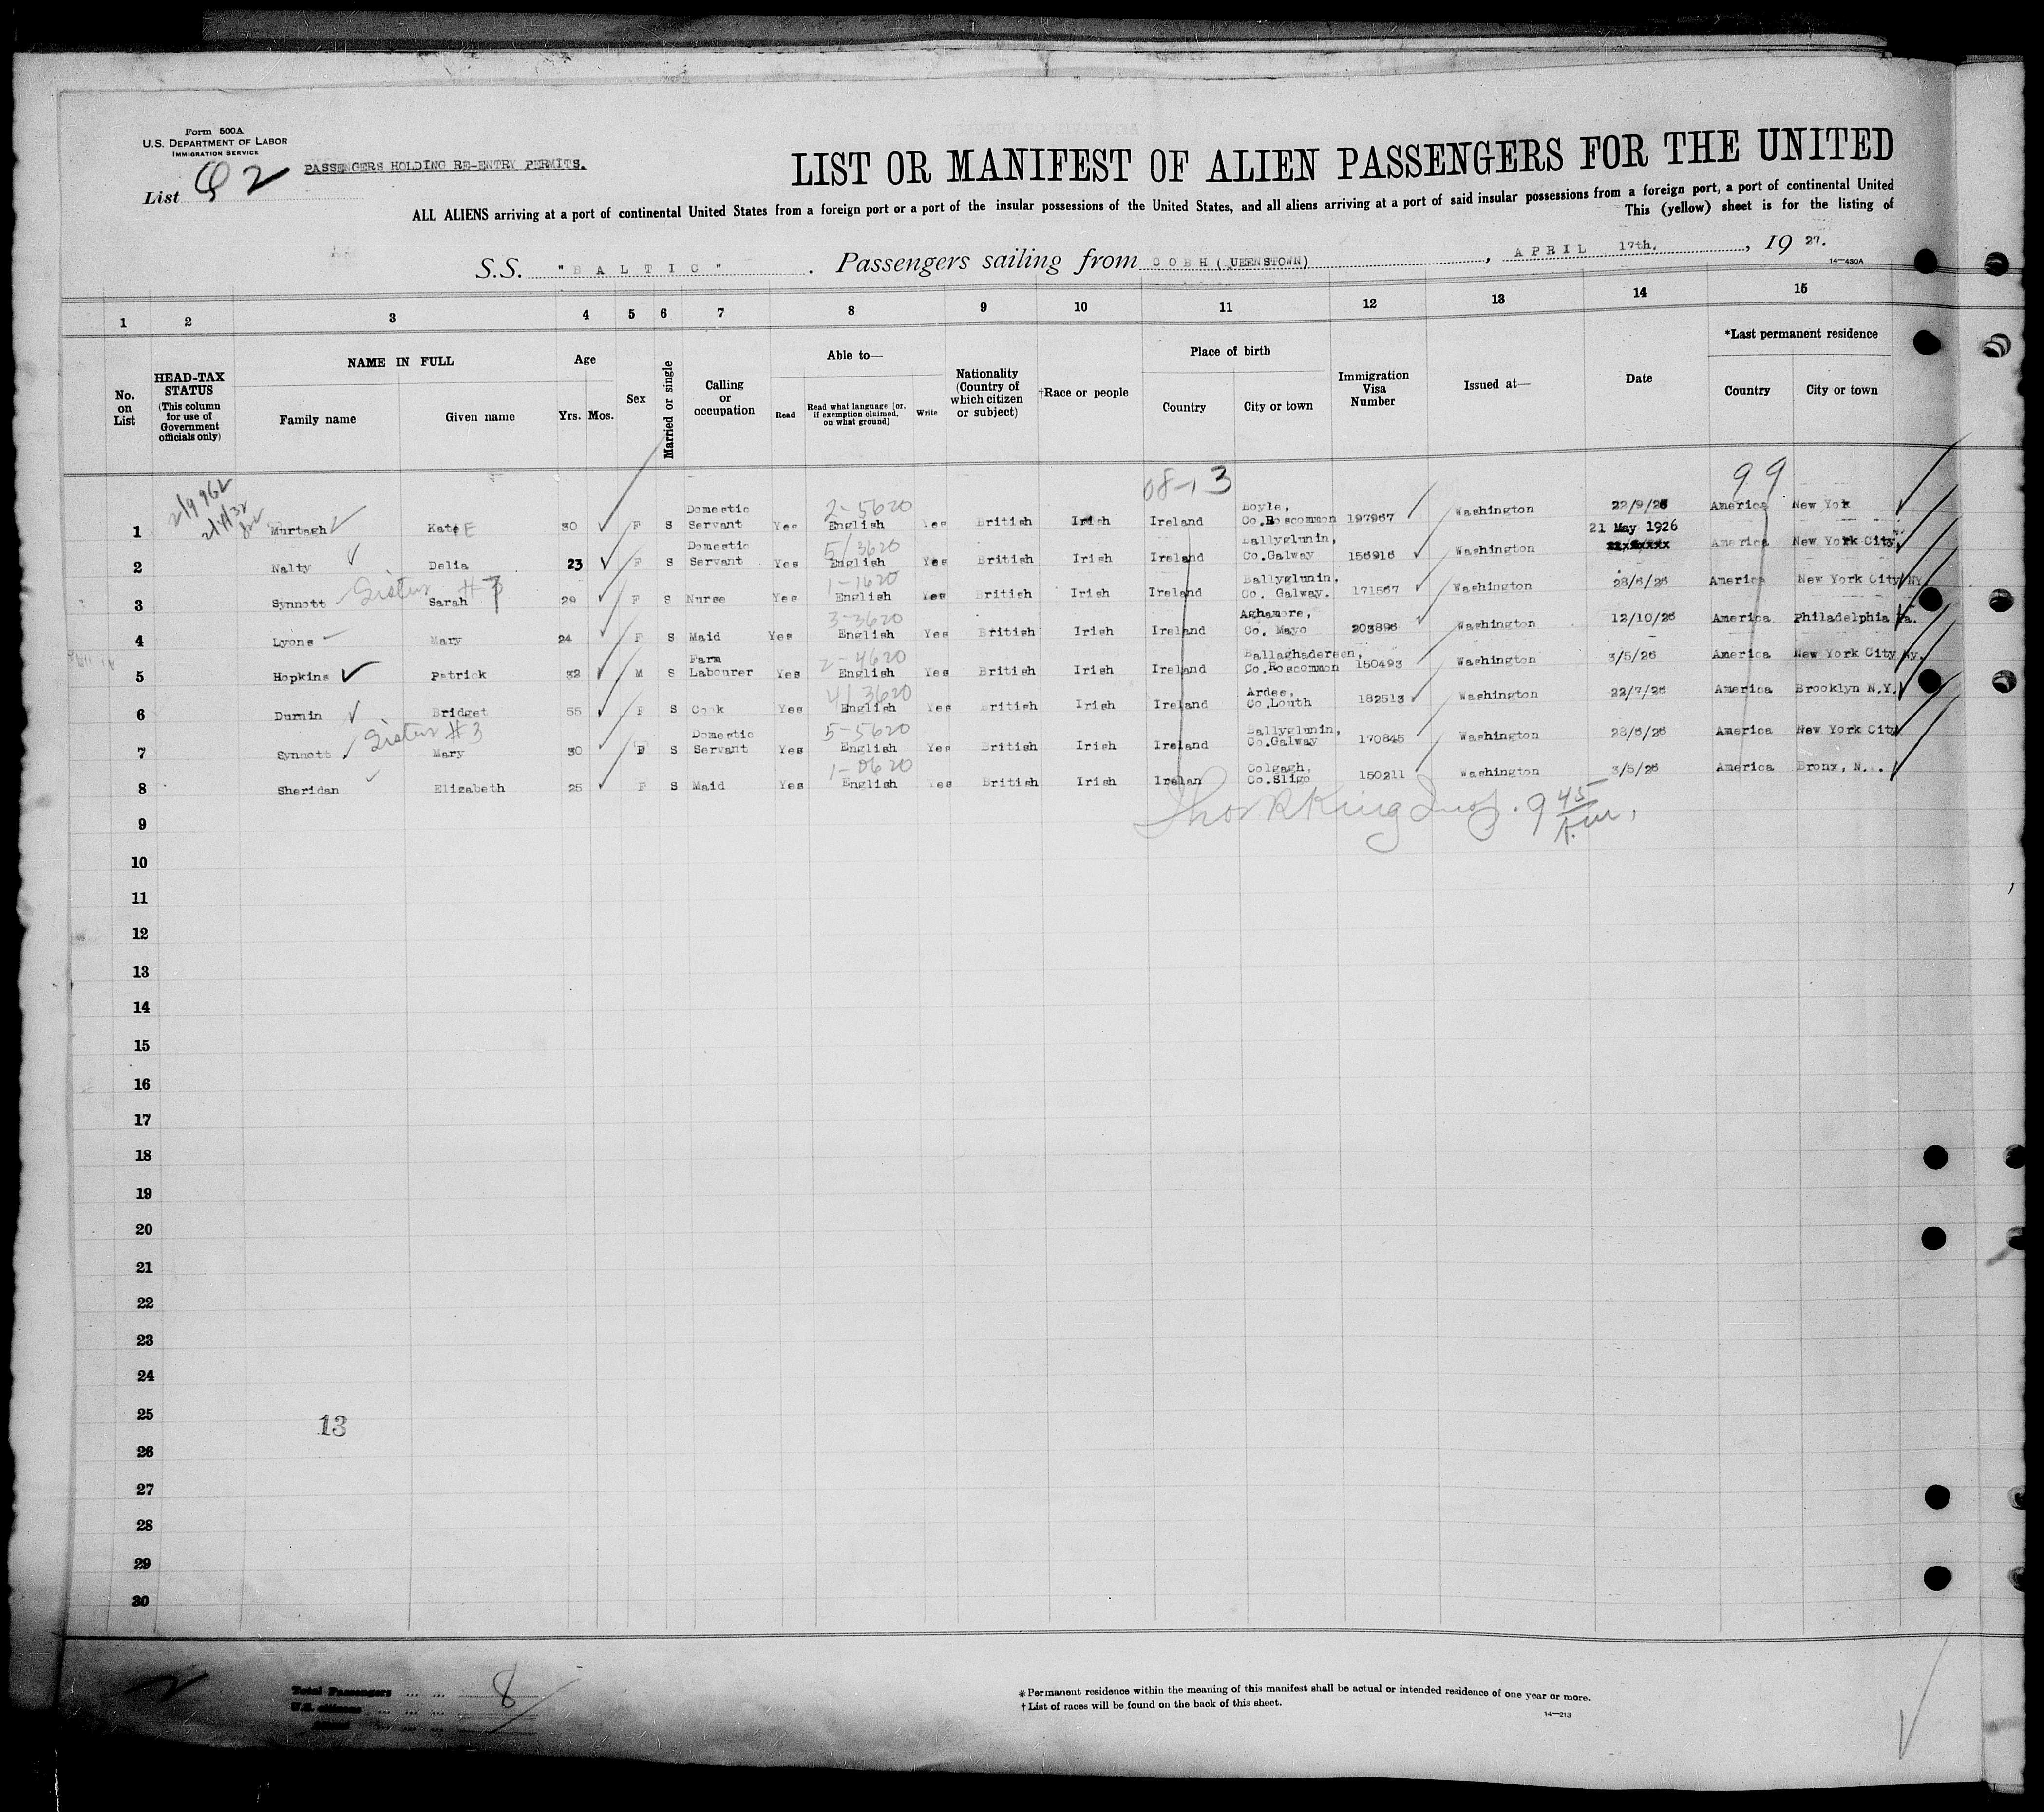 Form 500A
U.S. DEPARTMENT OF LABOR
IMMIGRATION SERVICE
PASSENGERS HOLDING RE-ENTRY PERMITS.
List 92
LIST OR MANIFEST OF ALIEN PASSENGERS FOR THE UNITED
ALL ALIENS arriving at a port of continental United States from a foreign port or a port of the insular possessions of the United States, and all aliens arriving at a port of said insular possessions from a foreign port, a port of continental United
This (yellow) sheet is for the listing of
S.S. "BALTIC". Passengers sailing from COBH (UEENSTOWN), APRIL 17th., 1927.
14—430A
1 2 3 4 5 6 7 8 9 10 11 12 13 14 15
No. on List
HEAD-TAX STATUS (This column for use of Government officials only)
NAME IN FULL
Family name Given name
Age
Yrs. Mos.
Sex
Married or single
Calling or occupation
Able to—
Read Read what language [or, if exemption claimed, on what ground] Write
Nationality (Country of which citizen or subject)
†Race or people
Place of birth
Country City or town
Immigration Visa Number
Issued at—
Date
*Last permanent residence
Country City or town
08-13 99
1 Murtagh Kate E 30 F S Domestic Servant Yes 2-5620 English Yes British Irish Ireland Boyle, Co.Roscommon 197967 Washington 22/9/26 America New Yok
2 Nalty Delia 23 F S Domestic Servant Yes 5/3620 English Yes British Irish Ireland Ballyglunin, Co.Galway 156916 Washington 21 May 1926 America New York City,
3 Synnott Sister #7 Sarah 29 F S Nurse Yes 1-1620 English Yes British Irish Ireland Ballyglunin, Co. Galway. 171567 Washington 28/6/26 America New York City NY
4 Lyons Mary 24 F S Maid Yes 3-3620 English Yes British Irish Ireland Aghamore, Co. Mayo 203896 Washington 12/10/26 America Philadelphia Pa.
5 Hopkins Patrick 32 M S Farm Labourer Yes 2-4620 English Yes British Irish Ireland Ballaghadereen, Co.Roscommon 150493 Washington 3/5/26 America New York City Ny.
6 Durnin Bridget 55 F S Cook Yes 4/3620 English Yes British Irish Ireland Ardee, Co.Louth 182513 Washington 22/7/26 America Brooklyn N.Y.
7 Synnott Sister #3 Mary 30 F S Domestic Servant Yes 5-5620 English Yes British Irish Ireland Ballyglunin, Co.Galway 170845 Washington 28/6/26 America New York City
8 Sheridan Elizabeth 25 F S Maid Yes 1-0620 English Yes British Irish Irelan Colgagh, Co.Sligo 150211 Washington 3/5/26 America Bronx, N.
9 Thos R King Insp. 9 45 A.M.
10
11
12
13
14
15
16
17
18
19
20
21
22
23
24
25
13
26
27
28
29
30
Total Passengers ... ... 8
U.S. citizens ... ...
Aliens ... ...
*Permanent residence within the meaning of this manifest shall be actual or intended residence of one year or more.
†List of races will be found on the back of this sheet.
14—213